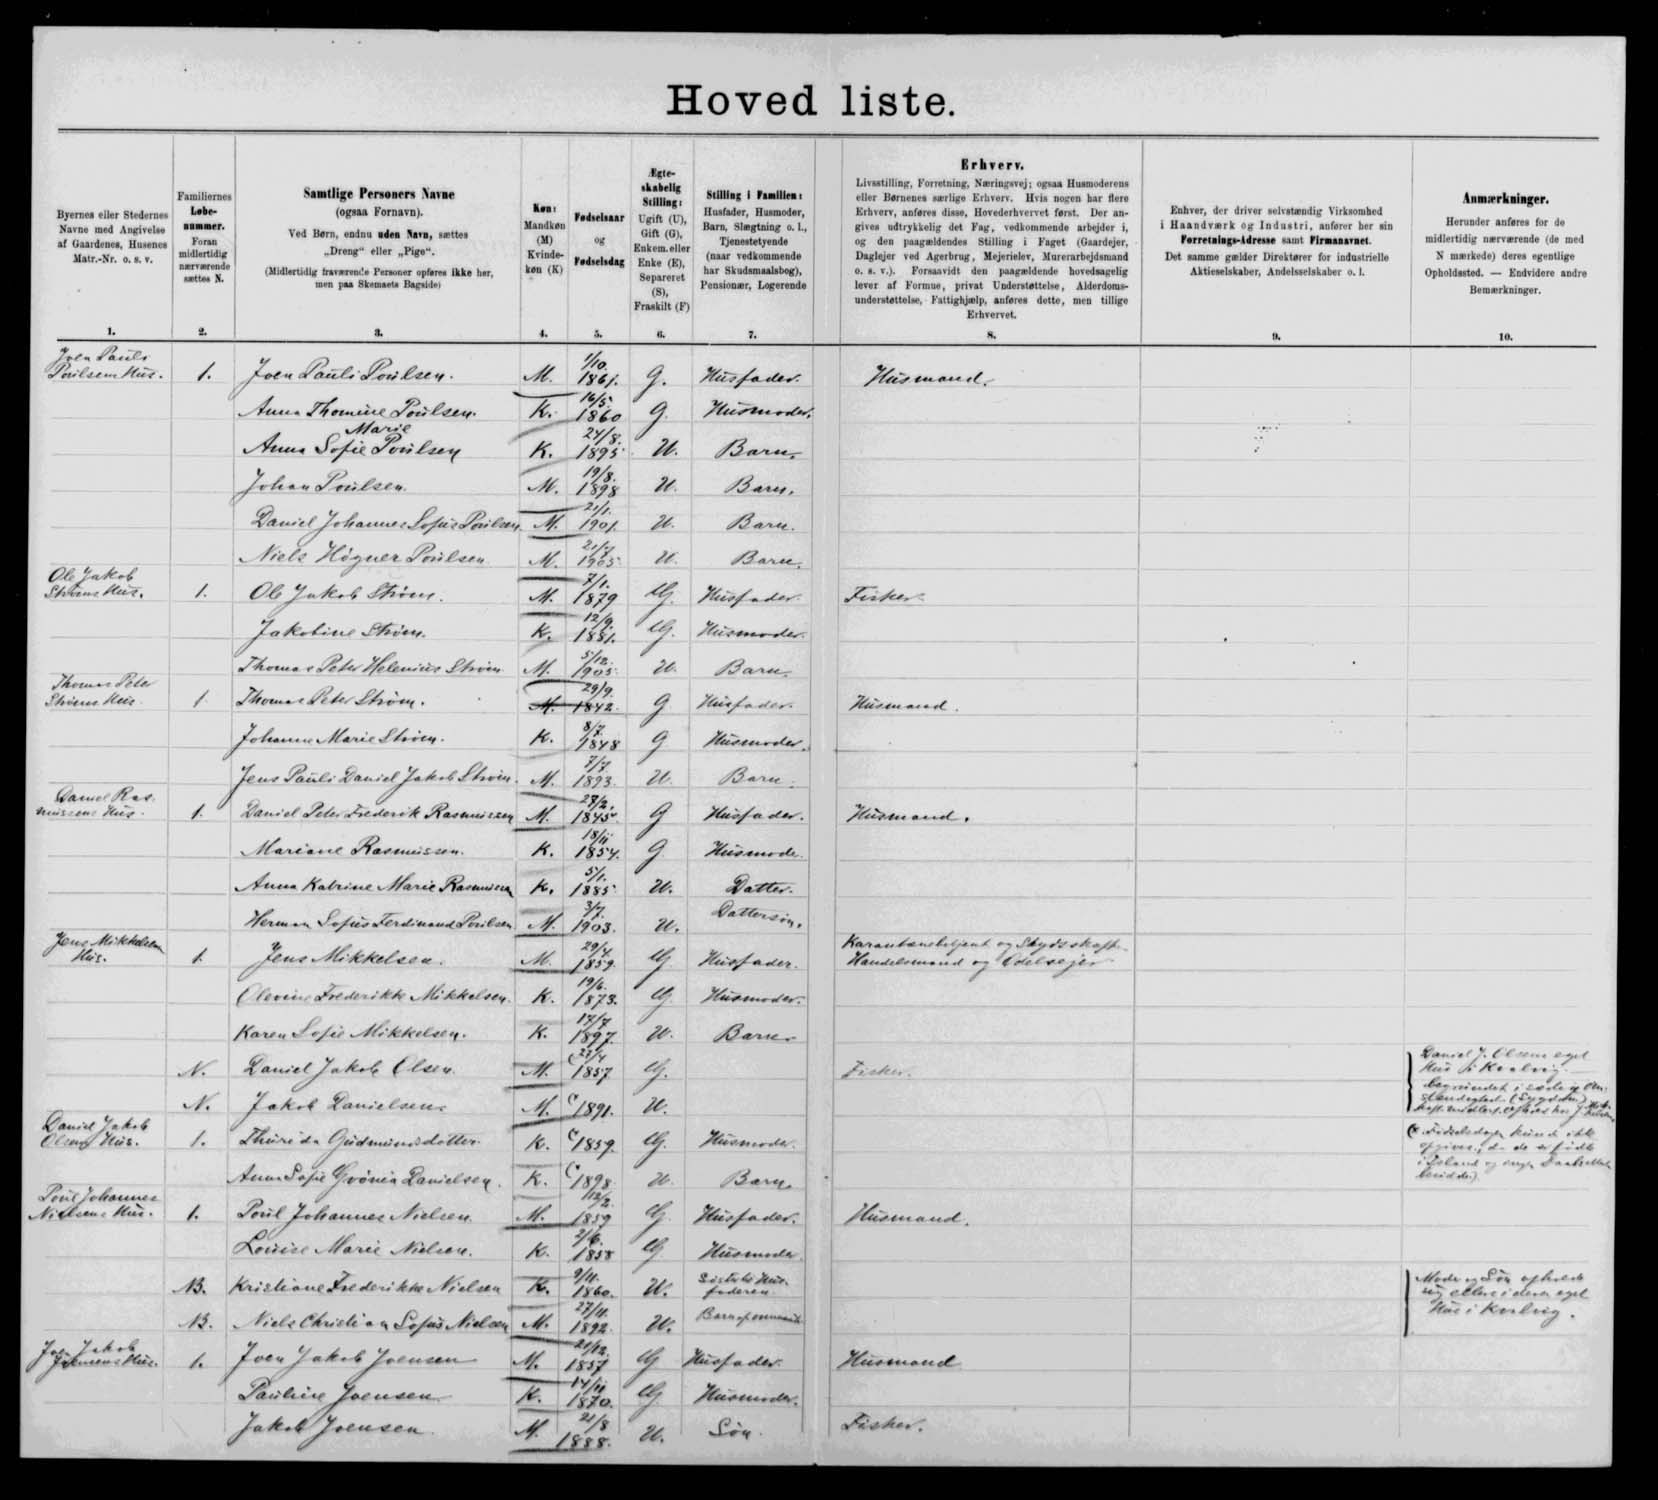 Hoved liste.
Byernes eller Stedernes
Navne med Angivelse
af Gaardenes, Husenes
Matr.-Nr. o. s. v.
1.
Familiernes
Løbe-
nummer.
Foran
midlertidig
nærværende
sættes N.
2.
Samtlige Personers Navne
(ogsaa Fornavn).
Ved Børn, endnu uden Navn, sættes
„Dreng“ eller „Pige“.
(Midlertidig fraværende Personer opføres ikke her,
men paa Skemaets Bagside)
3.
Køn:
Mandkøn
(M)
Kvinde-
køn (K)
4.
Fødselsaar
og
Fødselsdag
5.
Ægte-
skabelig
Stilling:
Ugift (U),
Gift (G),
Enkem. eller
Enke (E),
Separeret
(S),
Fraskilt (F)
6.
Stilling i Familien:
Husfader, Husmoder,
Barn, Slægtning o. l.,
Tjenestetyende
(naar vedkommende
har Skudsmaalsbog),
Pensionær, Logerende
7.
Erhverv.
Livsstilling, Forretning, Næringsvej; ogsaa Husmoderens
eller Børnenes særlige Erhverv. Hvis nogen har flere
Erhverv, anføres disse, Hovederhvervet først. Der an-
gives udtrykkelig det Fag, vedkommende arbejder i,
og den paagældendes Stilling i Faget (Gaardejer,
Daglejer ved Agerbrug, Mejerielev, Murerarbejdsmand
o. s. v.). Forsaavidt den paagældende hovedsagelig
lever af Formue, privat Understøttelse, Alderdoms-
understøttelse, Fattighjælp, anføres dette, men tillige
Erhvervet.
8.
Enhver, der driver selvstændig Virksomhed
i Haandværk og Industri, anfører her sin
Forretnings-Adresse samt Firmanavnet.
Det samme gælder Direktører for industrielle
Aktieselskaber, Andelsselskaber o. l.
9.
Anmærkninger.
Herunder anføres for de
midlertidig nærværende (de med
N mærkede) deres egentlige
Opholdssted. — Endvidere andre
Bemærkninger.
10.
Joen Pauli
Poulsens Hus. 1. Joen Pauli Poulsen. M. 1/10. 1861. G. Husfader. Husmand.
Anna Thomine Poulsen. K. 16/5. 1860 G. Husmoder.
Marie
Anna Sofie Poulsen K. 24/8. 1895 U. Barn.
Johan Poulsen. M. 19/8. 1898 U. Barn.
Daniel Johannes Sofus Poulsen M. 21/1. 1901. U. Barn.
Niels Høgner Poulsen M. 21/7 1905 U. Barn.
Ole Jakob
Strøms Hus. 1. Ole Jakob Strøm. M. 7/1. 1879 G. Husfader. Fisker.
Jakobine Strøm. K. 12/9. 1881. G. Husmoder.
Thomas Peter Helenius Strøm M. 5/12. 1905. U. Barn.
Thomas Peter
Strøms Hus. 1 Thomas Peter Strøm. M. 29/9. 1842. G Husfader. Husmand.
Johanne Marie Strøm. K. 8/7. 1848 G Husmoder.
Jens Pauli Daniel Jakob Strøm. M. 7/7. 1893. U. Barn.
Daniel Ras-
mussens Hus. 1. Daniel Peter Frederik Rasmussen M. 27/2. 1845 G Husfader. Husmand.
Mariane Rasmussen. K. 18/11 1854. G. Husmode.
Anna Katrine Marie Rasmussen K. 5/1. 1885 U. Datter.
Herman Sofus Ferdinand Poulsen M. 3/7. 1903. U. Dattersøn.
Jens Mikkelsens
Hus. 1. Jens Mikkelsen. M. 29/4 1859. G Husfader. Karantænebetjent og Skydsskaff.
Handelsmand og Odelsejer
Olevine Frederikke Mikkelsen. K. 19/6. 1873. G. Husmoder.
Karen Sofie Mikkelsen. K. 17/7 1897. U. Barn.
N. Daniel Jakob Olsen. M. 1857 G. Fisker. Daniel J. Olsens eget
Hus i Kvalvig.
N. Jakob Danielsen. M. 1891. U.
Daniel Jakob
Olsens Hus. 1. Thurida Gudmundsdotter. K. 1859. G. Husmoder. Fødselsdagen kunde ikke
opgives, da de er fødte
i Island og ingen
Anna Sofie Danielsen. K. 1898. U. Barn.
Poul Johannes
Nielsens Hus. 1. Poul Johannes Nielsen. M. 12/2. 1859 G Husfader. Husmand.
Louise Marie Nielsen. K. 2/6. 1858 G Husmoder.
NB. Kristiane Frederikke Nielsen K. 9/11. 1860. U. Søster til Hus-
faderen Moder og Søn opholde
sig ellers i deres eget
Hus i Kvalvig.
NB. Niels Christian Sofus Nielsen M. 27/11. 1892. U.
Joen Jakob
Joensens Hus. 1. Joen Jakob Joensen M. 21/12. 1857 G Husfader. Husmand
Pauline Joensen K. 14/11 1870. G. Husmoder.
Jakob Joensen M. 21/8 1888. U. Søn. Fisker.